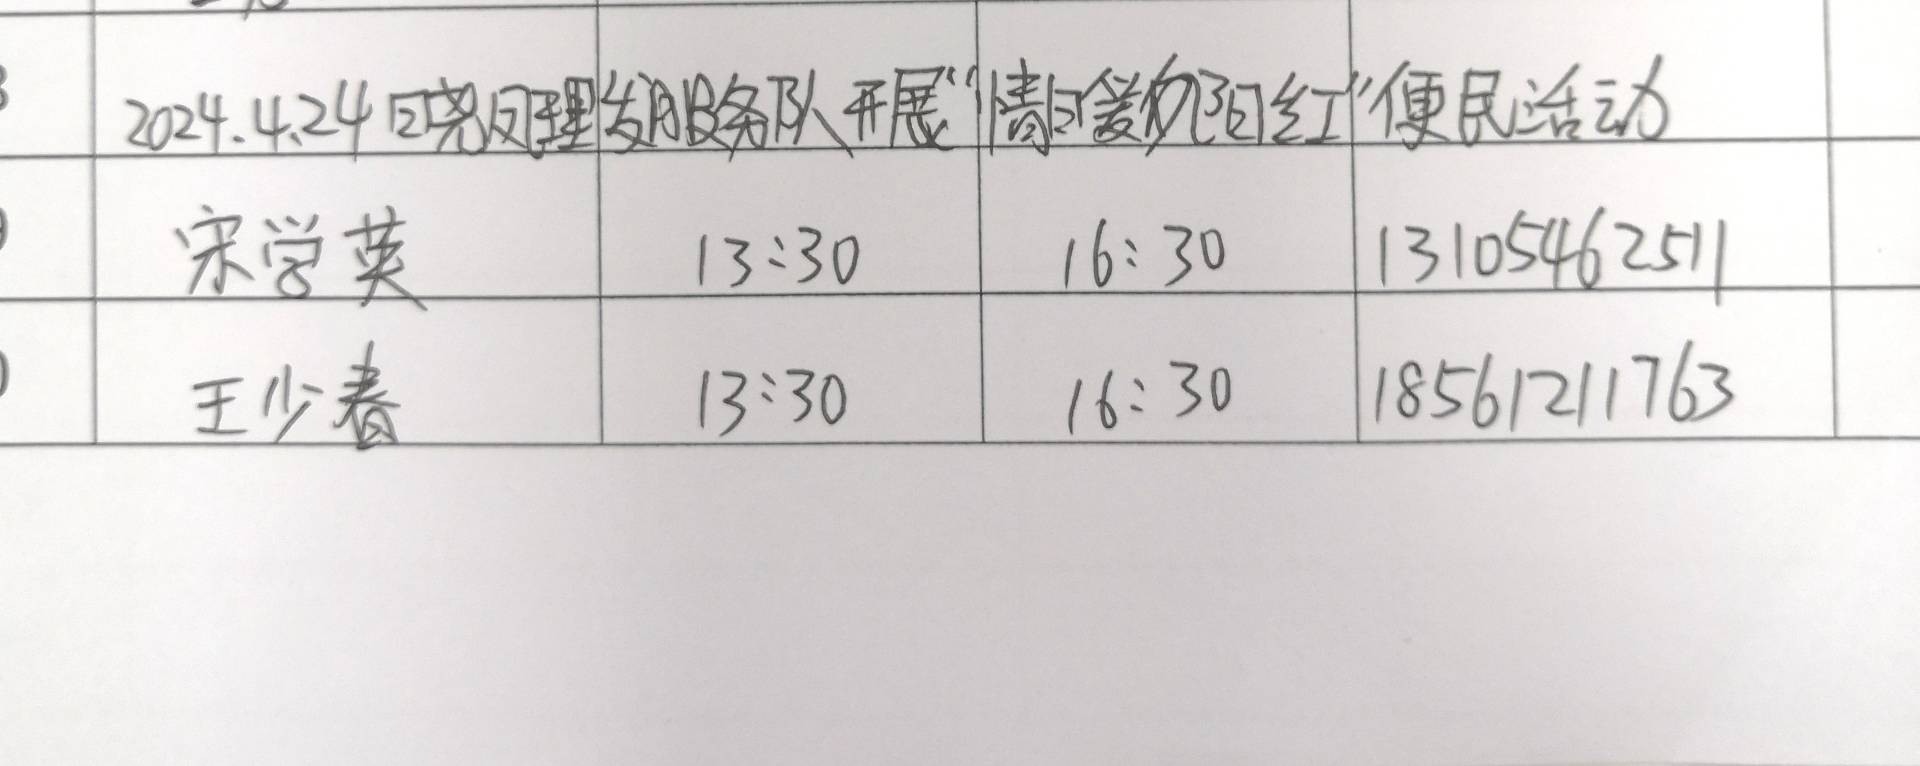 2024.4.24日晓风理发服务队开展“情暖夕阳红”便民活动
宋学英 13:30 16:30 13105462511
王少春 13:30 16:30 18561211763